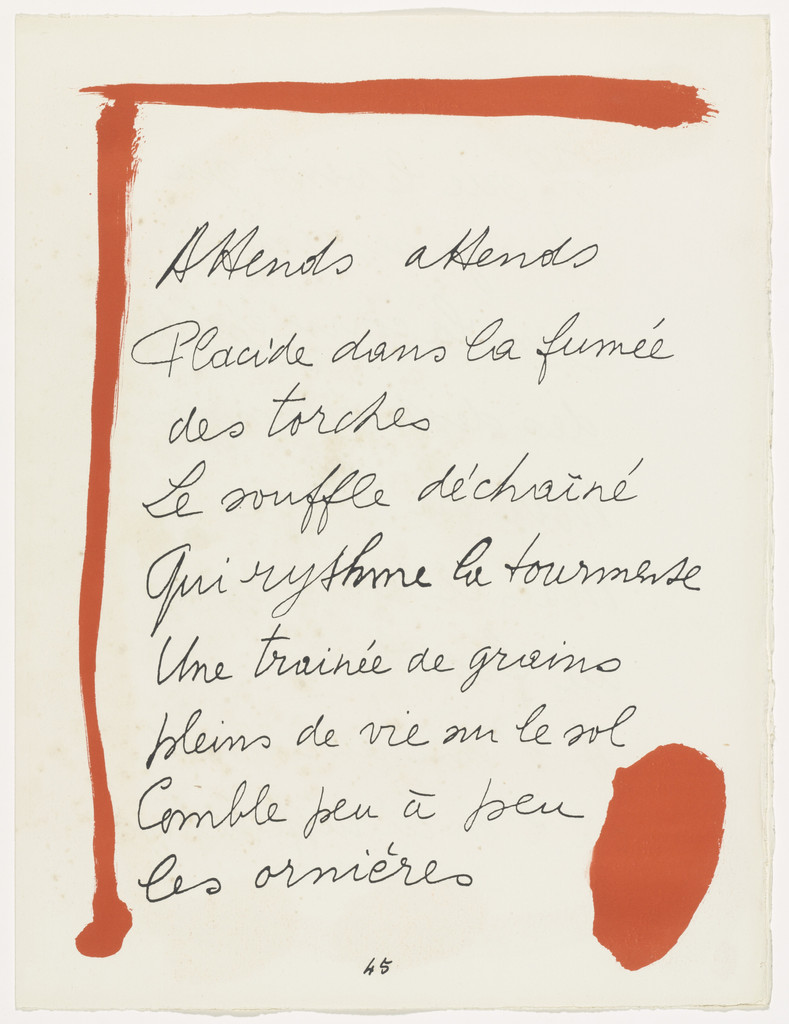 Attends attends
Placide dans la fumée
des torches
Le souffle déchaîné
Qui rythme la tourmente
Une traînée de grains
pleins de vie sur le sol
Comble peu à peu
les ornières
45